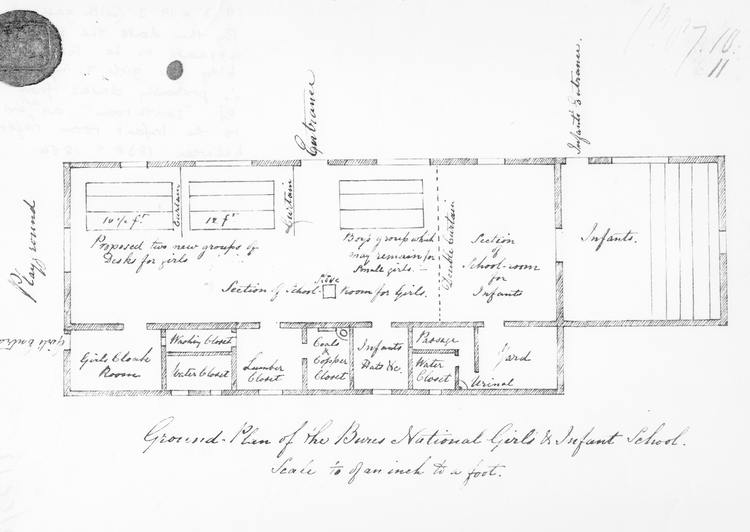 10
11
Entrance
Infants' Entrance.
Playground
10½ ft
Curtain
12 ft
Curtain
Proposed two new groups of
Desks for girls
Boys group which
may remain for
Small girls. —
Double Curtain
Section
of
School-room
for
Infants
Infants.
Section of School-
Stove
Room for Girls.
Girls Cloak
Room
Washing Closet
Water Closet
Lumber
Closet
Coals
&
Copper
Closet
Infants
Hats &c.
Passage
Water
Closet
Yard
Urinal
Ground-Plan of the Bures National Girls & Infant School.
Scale ⅒ of an inch to a foot.